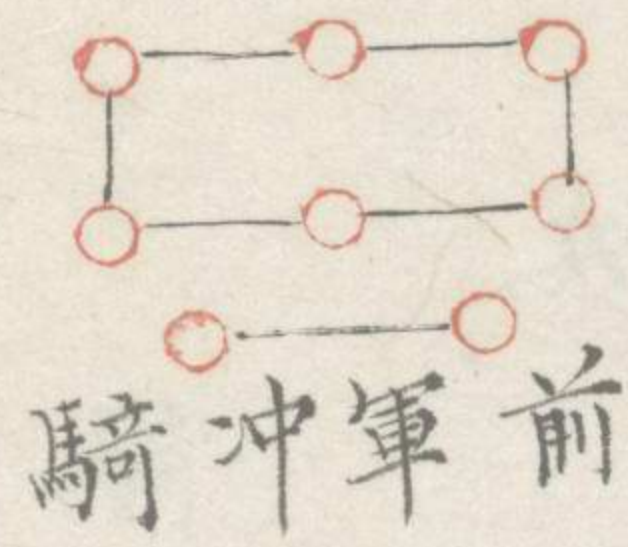 前軍冲騎